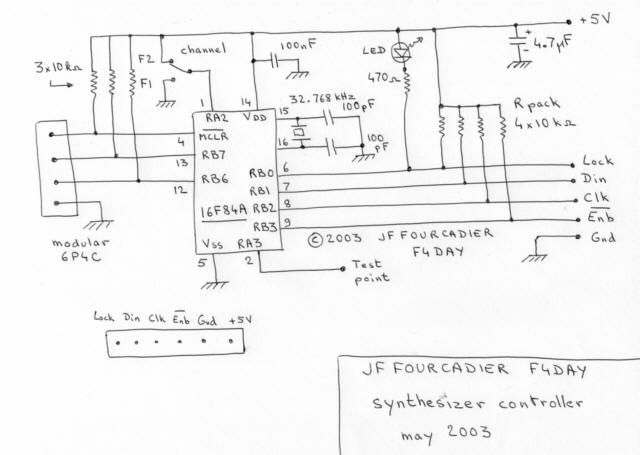 +5V
F2 channel
100nF
LED
+
-
4.7µF
3x10kΩ
F1
470Ω
1
14
32.768 kHz
15
100pF
R pack
4x10kΩ
RA2
VDD
4
MCLR
16
100
pF
13
RB7
RB0
6
Lock
12
RB6
RB1
7
Din
16F84A
RB2
8
Clk
RB3
9
Enb
modular
6P4C
© 2003 JF FOURCADIER
F4DAY
Gnd
Vss
RA3
5
2
Test
point
Lock Din Clk Enb Gnd +5V
JF FOURCADIER F4DAY
synthesizer controller
may 2003